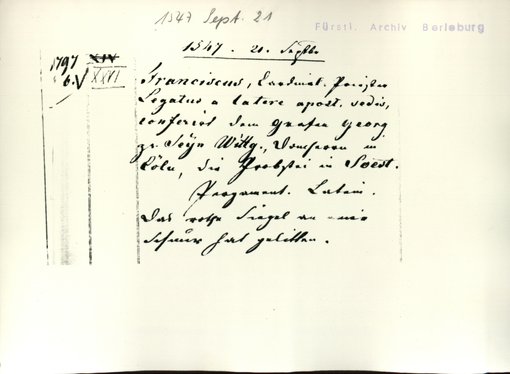 1547 Sept. 21
Fürstl. Archiv Berleburg
1547. 21. Septbr
1797 XIV
6. V XXVI
Franciscus, Cardinal. Priester
Legatus a latere apost. sedis,
conferirt dem Grafen Georg
zu Sayn Wittg., Domherrn in
Köln, die Probstei in Soest.
Pergament. Latein.
Das rothe Siegel an
Schnur hat gelitten.